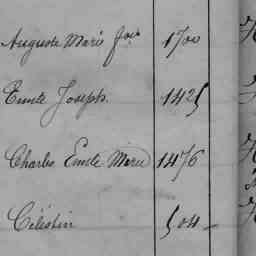 Auguste Marie Jos. 1700
Emile Joseph. 1425
Charles Emile Marie 1476
Célestin 504